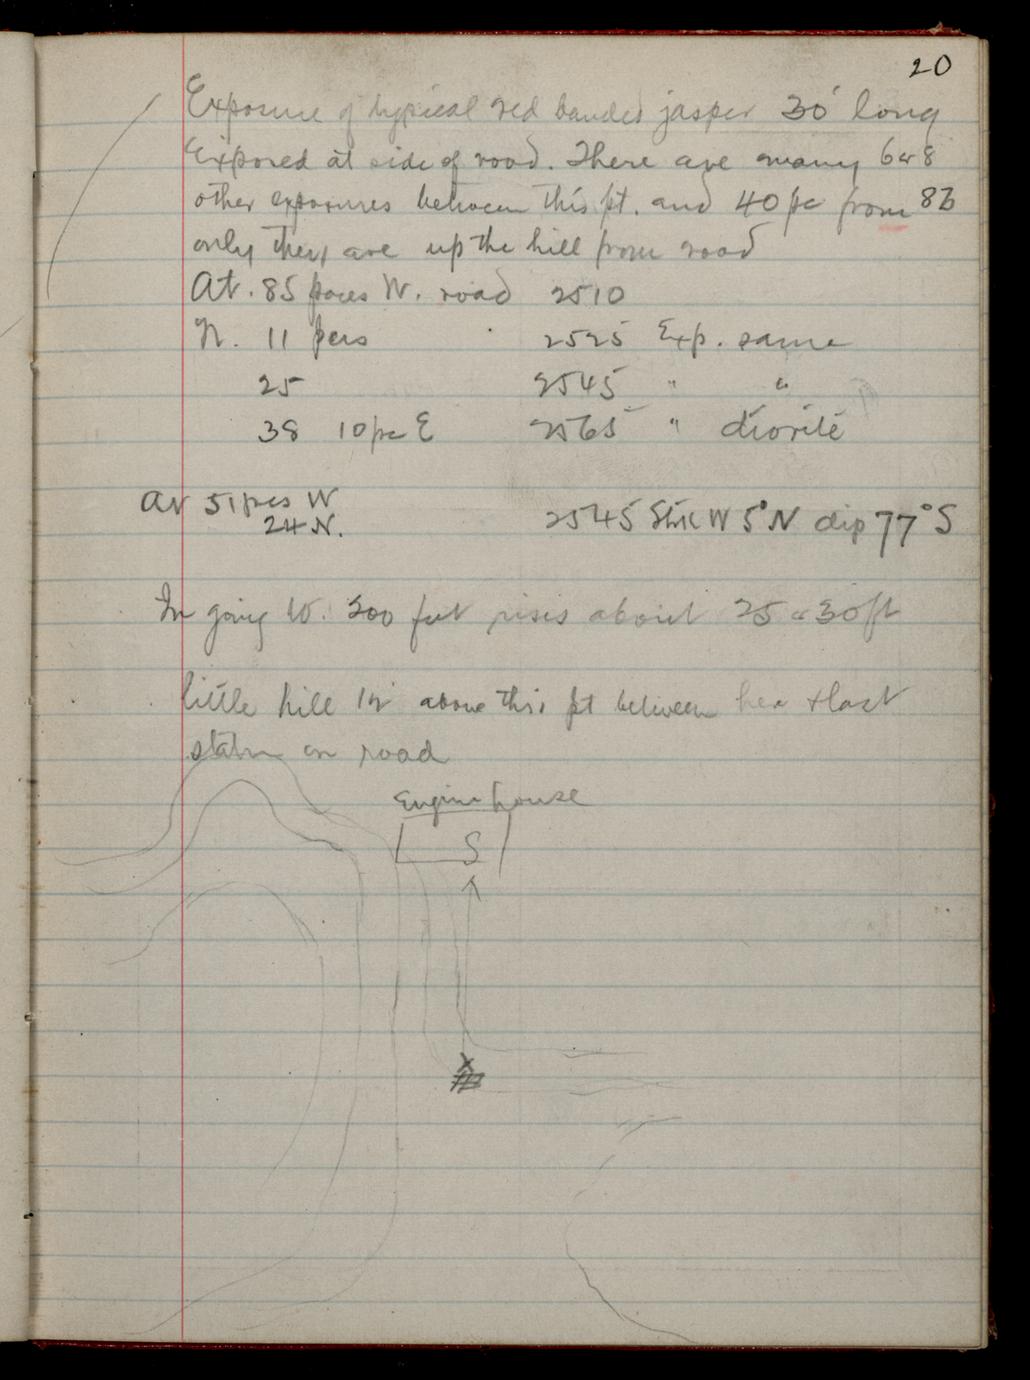 20
Exposure of typical red banded jasper 30' long
Exposed at side of road. There are many 6 or 8
other exposures between this pt. and 40 pc from 83
only they are up the hill from road
At. 85 paces W. road 2510
N. 11 pcs 2525 Exp. same
25 2545 " "
38 10 pc E 2565 " diorite
At 51 pcs W
24 N. 2545 Stk W 5° N dip 77° S
In going W. 200 feet rises about 25 or 30 ft
little hill 12' above this pt between here + last
station on road
Engine house
S
X